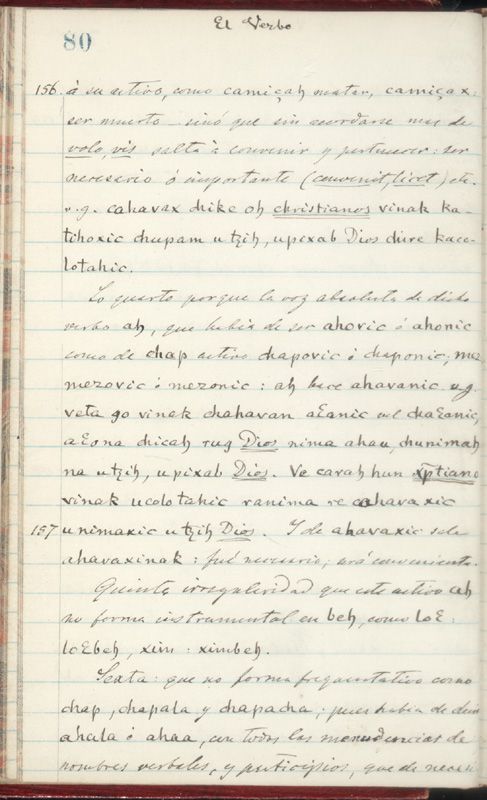 El Verbo
80
156. à su activo, como camiçah matar, camiçax:
ser muerto: sinó que sin acordarse mas de
volo, vis salta à convenir y pertenecer: ser
necesario ó importante (convenit, licet) etc.
v.g. cahavax chike oh christianos vinak ka-
tihoxic chupam u tzih, u pixab Dios chire kaco-
lotahic.
Lo quarto porque la voz absoluta de dicho
verbo ah, que habia de ser ahovic ó ahonic
como de chap activo chapovic ó chaponic; mez
mezovic ó mezonic: ah hace ahavanic v.g.
veta go vinak chahavan aƐanic vel chaƐanic,
aƐo na chicah rug Dios nima ahau, chunimah
na u tzih, u pixab Dios. Ve carah hun xptiano
vinak u colotahic ranima re cahavaxic
157 u nimaxic u tzih Dios. I de ahavaxic sale
ahavaxinak: fué necesario, será conveniente.
Quinta irregularidad que este activo ah
no forma instrumental en beh, como loƐ:
loƐbeh, xim: ximbeh.
Sexta: que no forma frequentativo como
chap, chapala y chapacha; pues habia de decir
ahala ó ahaa, con todas las menudencias de
nombres verbales, y participios, que de